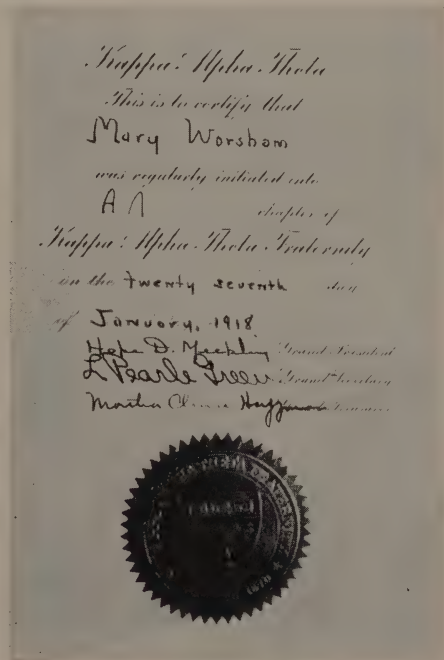 Kappa Alpha Theta
This is to certify that
Mary Worsham
was regularly initiated into
A Λ chapter of
Kappa Alpha Theta Fraternity
on the twenty seventh day
of January, 1918
Hope D. Mecklin Grand President
L Pearle Green Grand Secretary
Martha Cline Huffman
FRATERNITY
1870